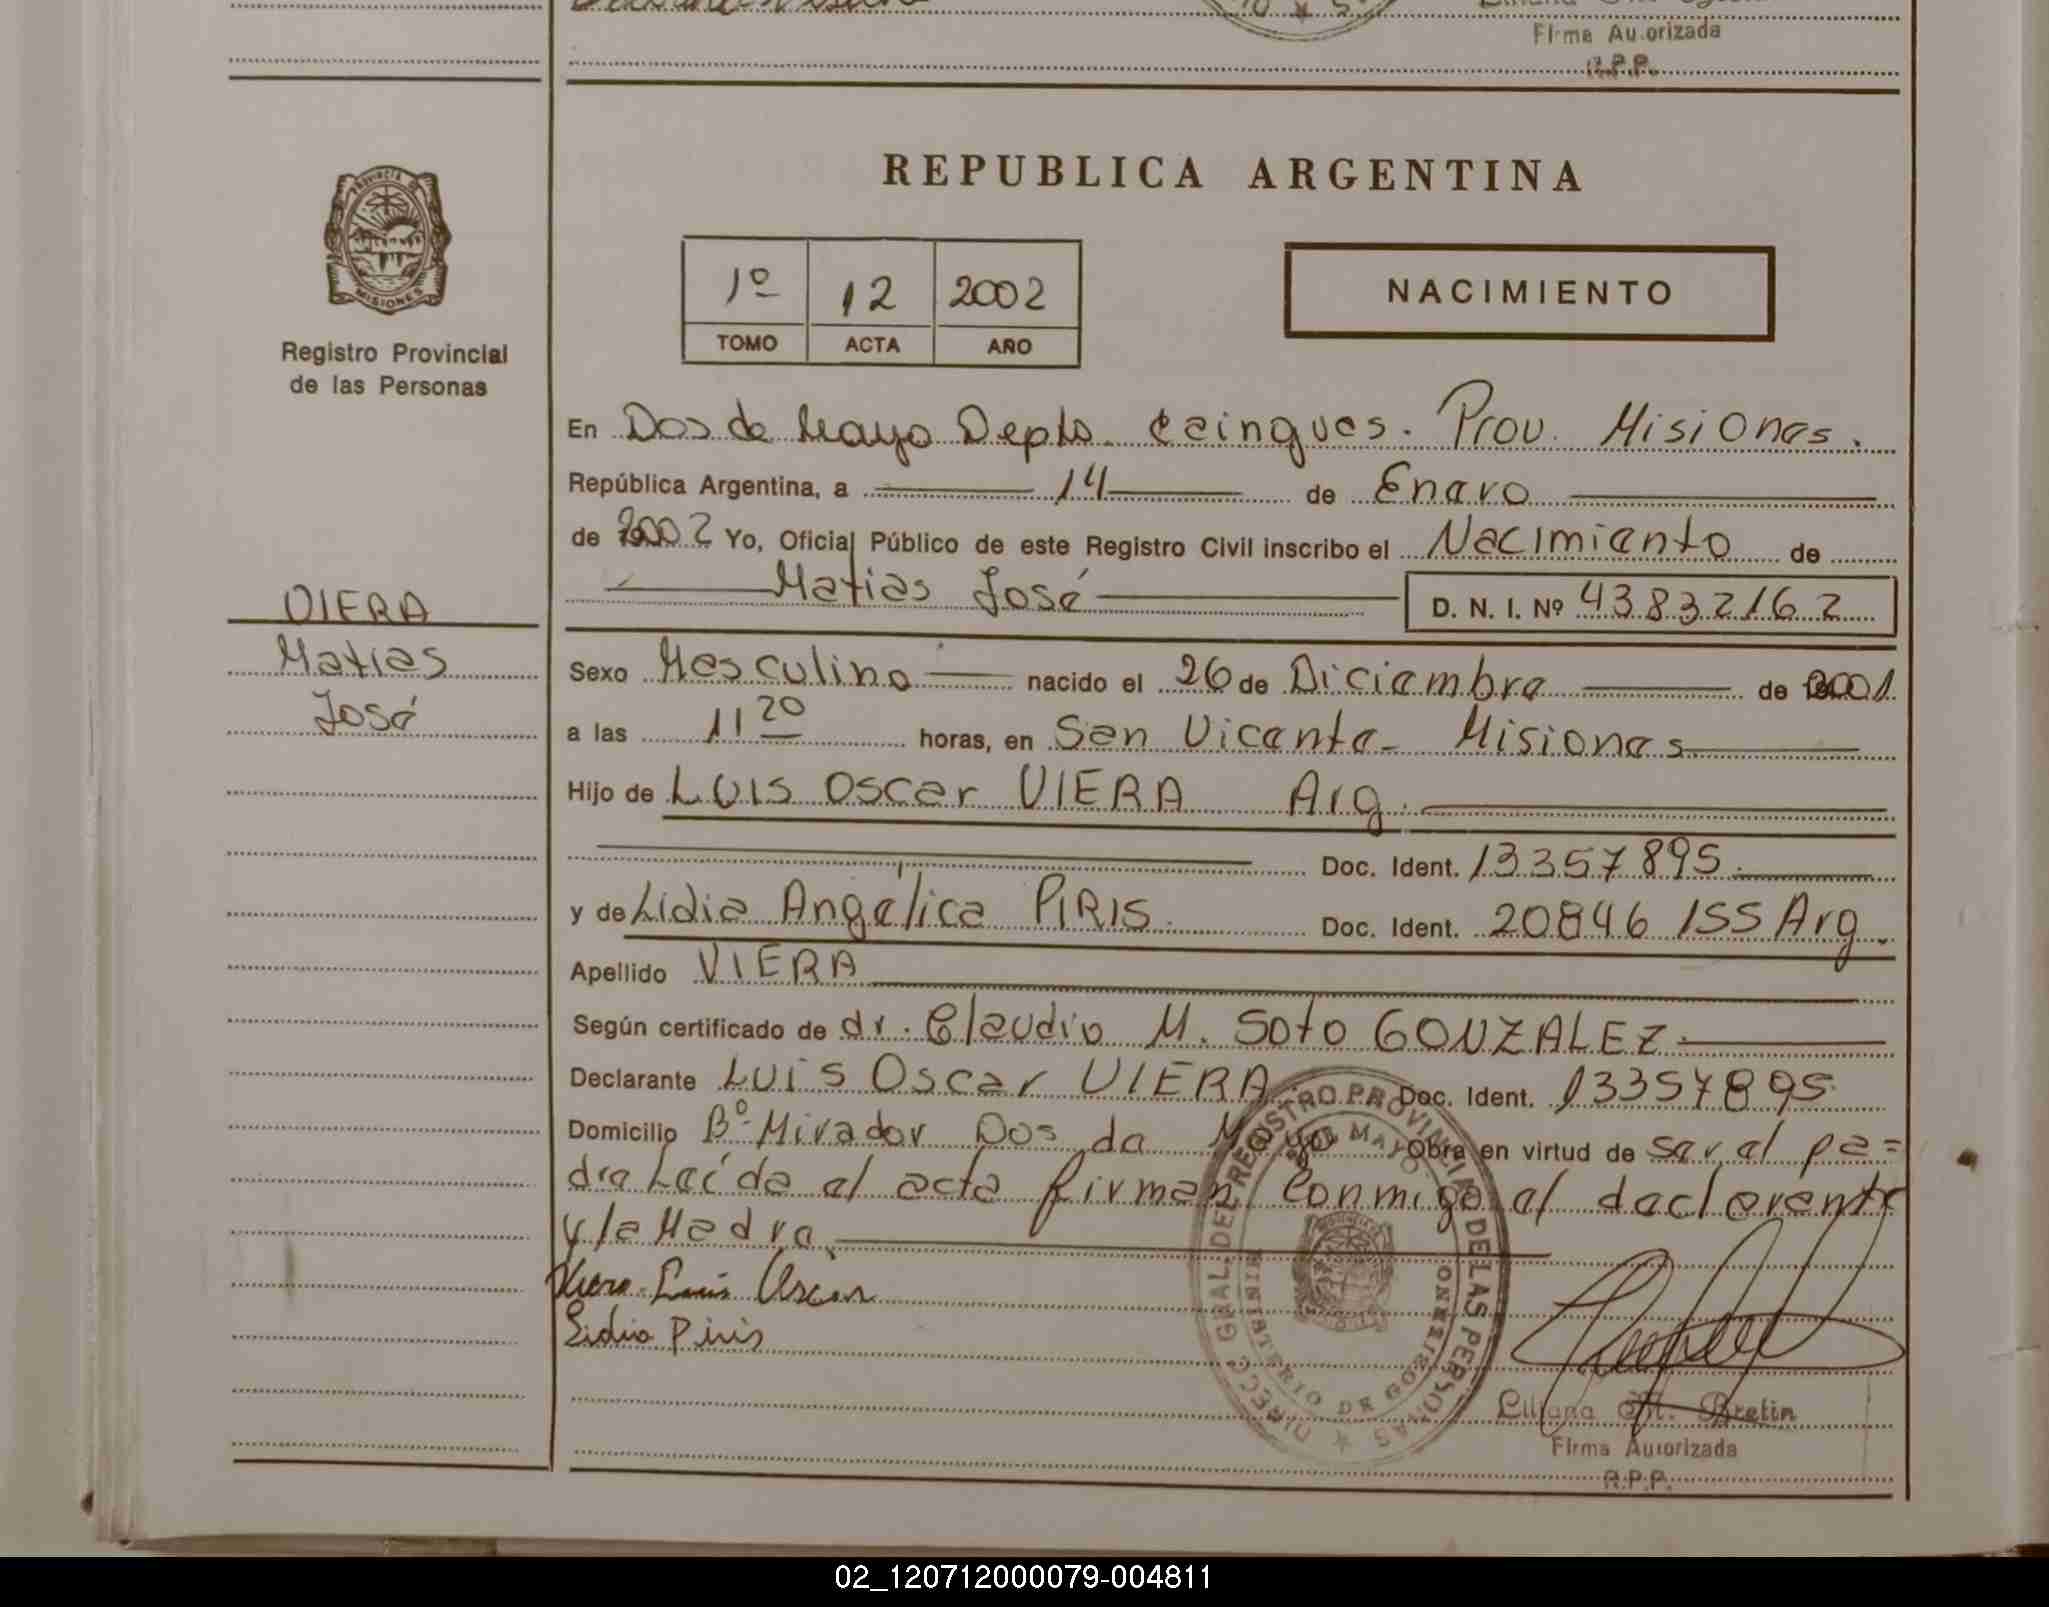 Firma Autorizada
R.P.P.
REPUBLICA ARGENTINA
PROVINCIA DE
MISIONES
Registro Provincial
de las Personas
1º 12 2002
TOMO ACTA AÑO
NACIMIENTO
En Dos de Mayo Depto. Cainguas. Prov. Misiones.
República Argentina, a 14 de Enero
de 2002 Yo, Oficial Público de este Registro Civil inscribo el Nacimiento de
Matias José D. N. I. Nº 43832162
VIERA
Matias
José
Sexo Masculino nacido el 26 de Diciembre de 2001
a las 11 20 horas, en San Vicente - Misiones
Hijo de Luis Oscar VIERA Arg.
Doc. Ident. 13357895
y de Lidia Angélica PIRIS. Doc. Ident. 20846155 Arg.
Apellido VIERA
Según certificado de dr. Claudio M. Soto GONZALEZ
Declarante Luis Oscar VIERA Doc. Ident. 13357895
Domicilio Bº Mirador Dos de Mayo Obra en virtud de ser el pa=
dre Leída el acta firman conmigo el declarante
y la Madre.
Viera Luis Oscar
Lidia Piris
DIRECC. GRAL. DEL REGISTRO PROVINCIAL DE LAS PERSONAS
DOS DE MAYO
MINISTERIO DE GOBIERNO
Liliana Bretin
Firma Autorizada
R.P.P.
02_120712000079-004811